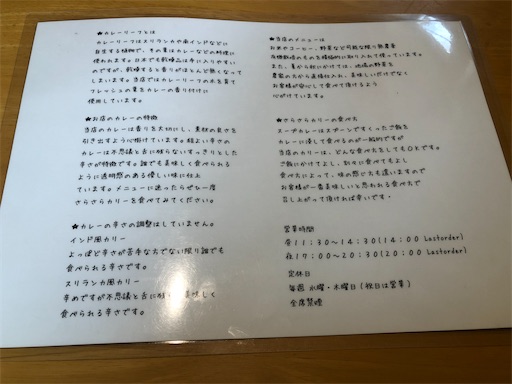 ★カレーリーフとは
カレーリーフはスリランカや南インドなどに
自生する植物で、その葉はカレーなどの料理に
使われます。日本でも乾燥品は手に入りやすい
のですが、乾燥すると香りがほとんど無くなって
しまいます。当店ではカレーリーフの木を育て
フレッシュの葉をカレーの香り付けに
使用しています。
★お店のカレーの特徴
当店のカレーは香りを大切にし、素材の良さを
引き出すよう心掛けています。程よい辛さの
カレーは不思議と舌に残らないすっきりとした
辛さが特徴です。誰でも美味しく食べられる
ように透明感のある優しい味に仕上
ています。メニューに迷ったらぜひ一度
さらさらカリーを食べてみてください。
★カレーの辛さの調整はしていません。
インド風カリー
よっぽど辛さが苦手な方でない限り誰でも
食べられる辛さです。
スリランカ風カリー
辛めですが不思議と舌に残らず美味しく
食べられる辛さです。
★当店のメニューは
お米やコーヒー、野菜など可能な限り無農薬
有機栽培のものを積極的に取り入れて使っています。
また、夏から秋にかけては、地場の野菜を
農家の方から直接仕入れ、美味しいだけでなく
お客様が安心して食べて頂けるよう
心がけています。
★さらさらカリーの食べ方
スープカレーはスプーンですくったご飯を
カレーに浸して食べるのが一般的ですが
当店のカリーは、どんな食べ方をしてもOKです。
ご飯にかけてよし、別々に食べてもよし
食べ方によって、味の感じ方も違いますので
お客様が一番美味しいと思われる食べ方で
召し上がって頂ければ幸いです・
営業時間
昼11:30～14:30(14:00 Lastorder)
夜17:00～20:30(20:00 Lastorder)
定休日
毎週 水曜・木曜日(祝日は営業)
全席禁煙